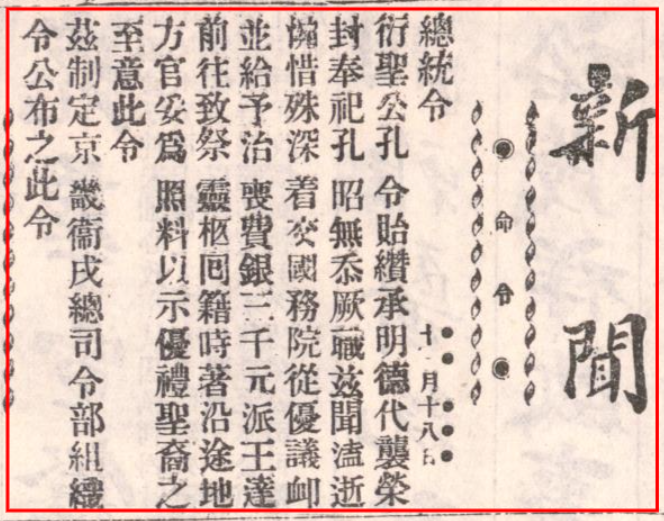 新聞
命令
十一月十八日
總統令
衍聖公孔令貽纘承明德代襲榮
封奉祀孔昭無忝厥職茲聞溘逝
惋惜殊深着交國務院從優議卹
並給予治喪費銀三千元派王達
前往致祭靈柩回籍時著沿途地
方官妥爲照料以示優禮聖裔之
至意此令
茲制定京畿衞戍總司令部組織
令公布之此令